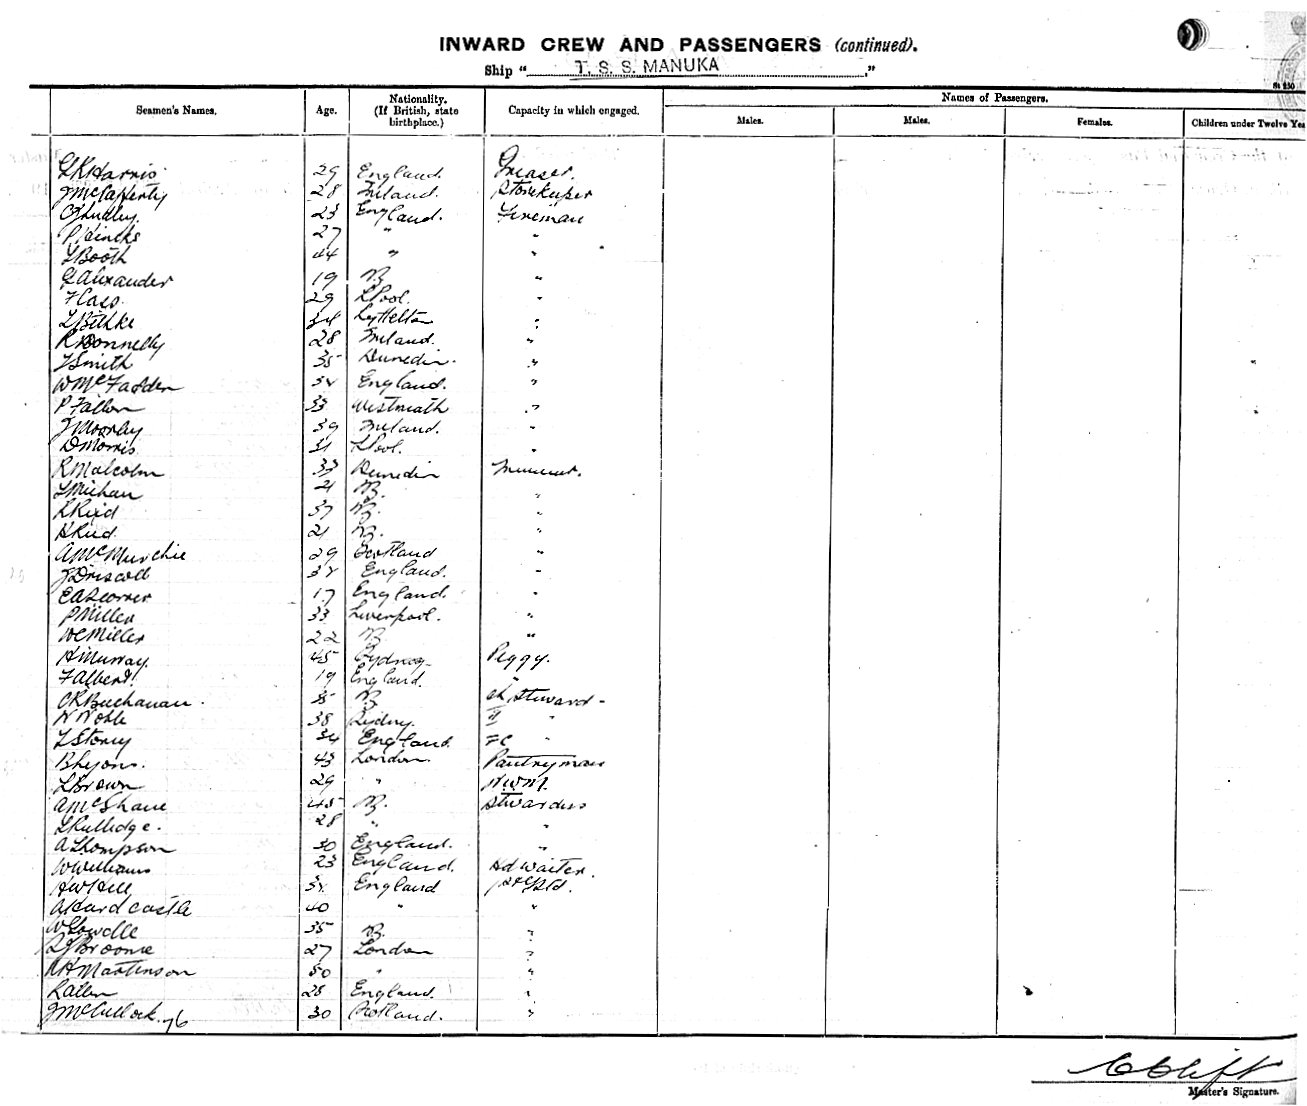 INWARD CREW AND PASSENGERS (continued).
Ship " T. S. S. MANUKA ,"
Seamen's Names. Age. Nationality. (If British, state birthplace.) Capacity in which engaged. Names of Passengers.
Males. Males. Females. Children under Twelve Yea
L R Harris 29 England Greaser.
J McCafferty 28 Ireland. Storekeeper
23 England. Fireman
27 " "
L Booth 44 " "
G Alexander 19 NZ "
F Cass. 29 LPool. "
L Bethke 34 Lyttelton "
R Donnelly 28 Ireland. "
J Smith 35 Dunedin. "
W McFadden 34 England. "
P Fallon 33 Westmeath "
J Moorley 39 Ireland. "
D Morris 31 LPool. "
R Malcolm 33 Dunedin Trimmer.
L Michau 21 NZ. "
R Reid 37 NZ. "
S Reid. 21 NZ. "
A McMurchie 29 Scotland "
J Driscoll 34 England. "
17 England. "
P Miller 33 Liverpool. "
W C Miller 22 NZ "
H Murray. 45 Sydney Peggy.
F Albert. 19 England. "
C R Buchanan. 35 NZ Ch. Steward
N Noble 38 Sydney. II "
L Storey 34 England. FC "
B Lyons. 43 London. Pantryman
L Brown 29 " N.W.M.
A McShane 45 NZ. Stewardess
L Rutledge. 28 " "
A Thompson 30 England. "
W Williams 23 England. Hd Waiter.
H W Hill 34 England
A Hardcastle 40 " "
W Lowelle 35 NZ. "
L J Broome 27 London "
A H Martinson 50 " "
R Allen 28 England. "
J McCullock. 76 30 Scotland. "
C Clift
Master's Signature.